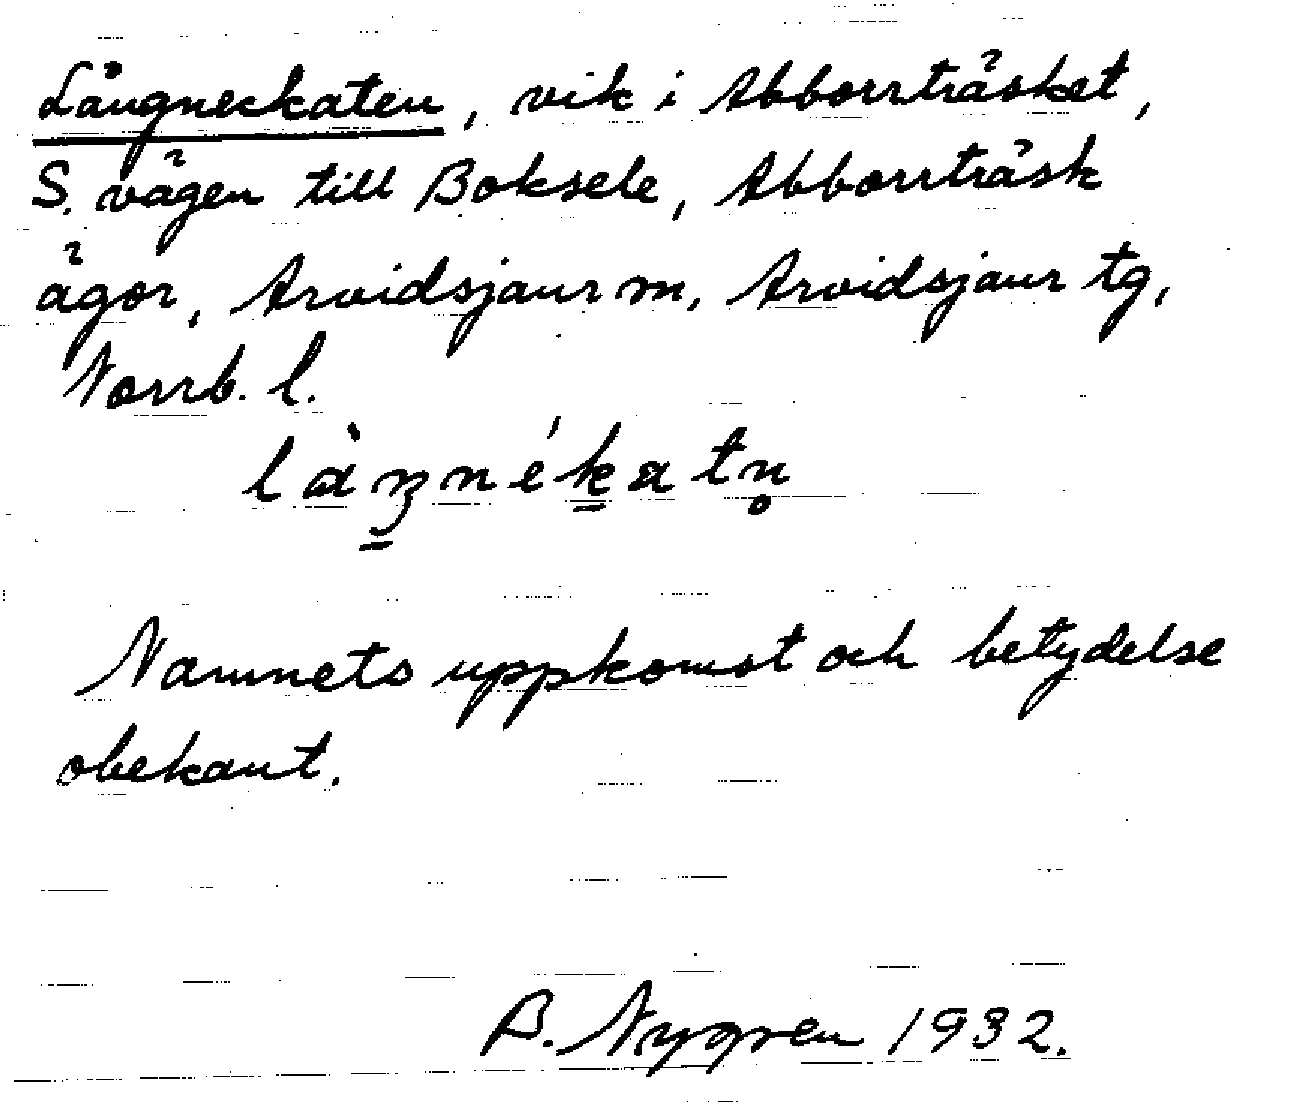 Långneckaten, vik i Abborrträsket,
S. vägen till Boksele, Abborrträsk
ägor, Arvidsjaur m, Arvidsjaur tg,
Norrb. l.
Namnets uppkomst och betydelse
obekant.
B. Nygren 1932.